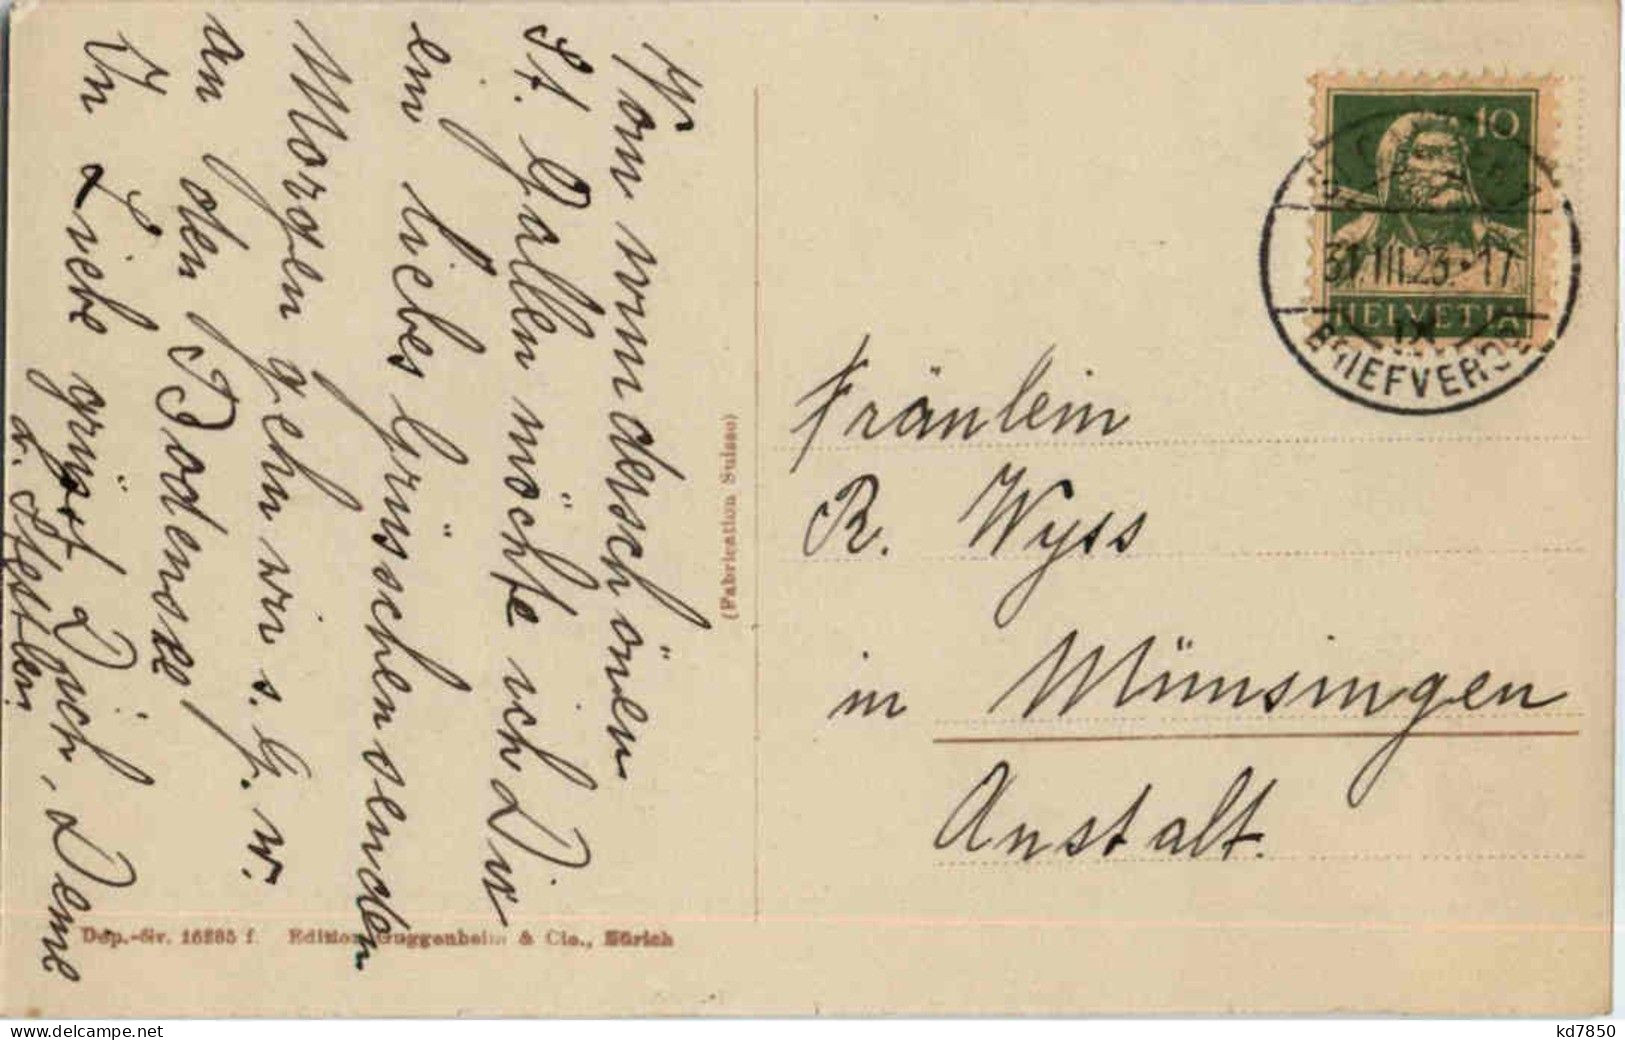 Vom wunderschönen
St. Gallen möchte ich Dir
ein liebes Grüsschen senden
Morgen gehn wir s. G. w.
an den Bodensee
In Liebe grüsst Dich, Deine
(Fabrication Suisse)
Dép.-Nr. 16285 f. Edition Guggenheim & Cie., Zürich
10
HELVETIA
31.III.23.-17
IX
BRIEFVERSD.
Fräulein
R. Wyss
in Münsingen
Anstalt.
delcampe.net
kd7850